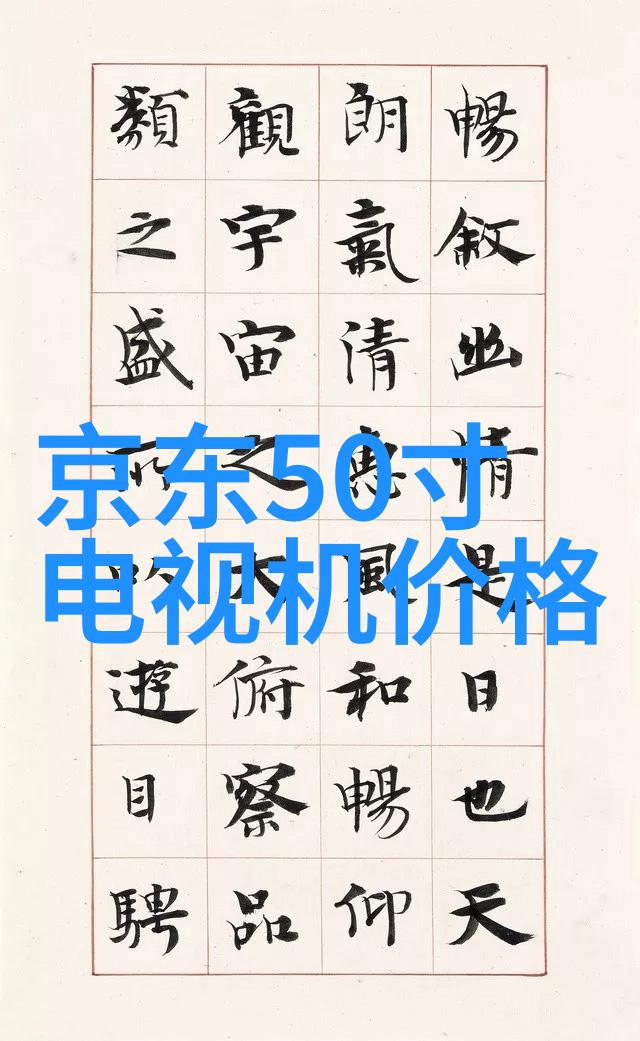 暢敘幽情是日也天
朗氣清惠風和暢仰
觀宇宙之大俯察品
類之盛所以遊目騁
京东50寸
电视机价格